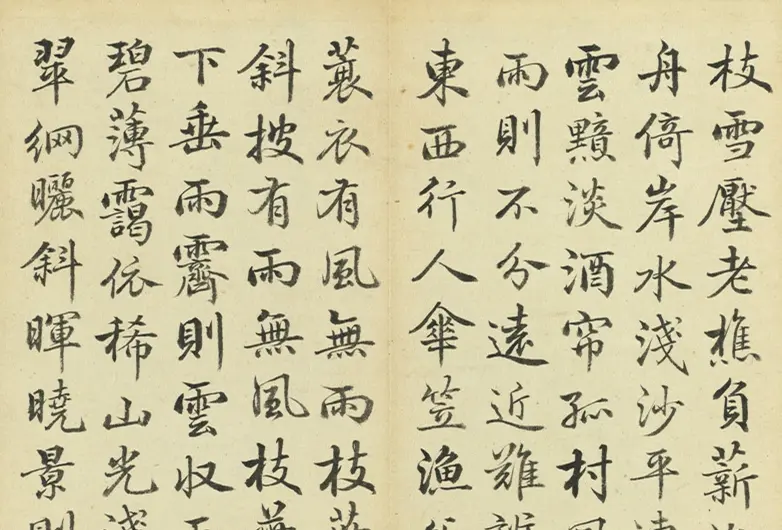 枝雪壓老樵負薪
舟倚岸水淺沙平
雲黯淡酒帘孤村
雨則不分遠近難
東西行人傘笠漁
蓑衣有風無雨枝
斜披有雨無風枝
下垂雨霽則雲收
碧薄靄依稀山光
翠網曬斜暉曉景則